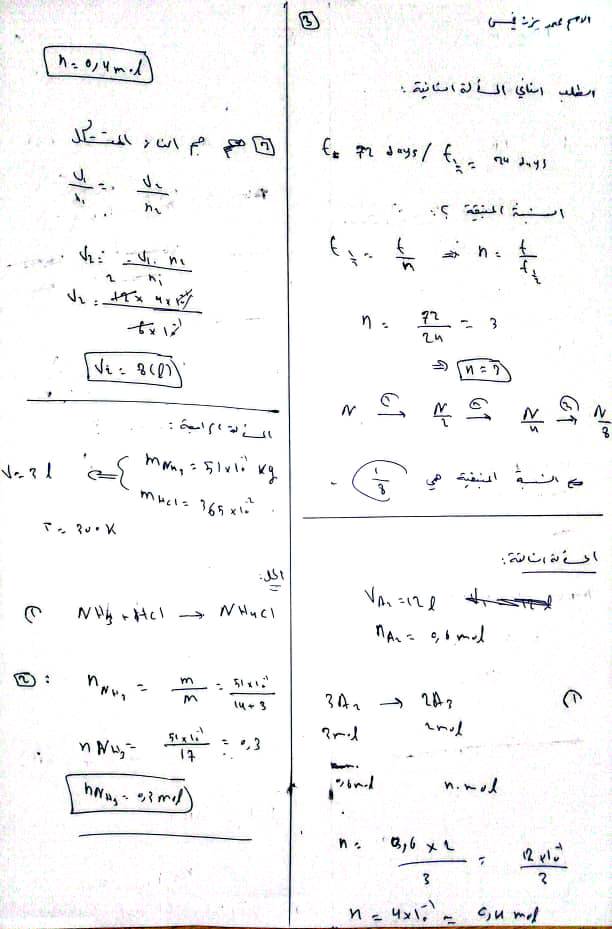 3
الطلب الثاني المسألة الثانية :
t = 72 days / t½ = 24 days
النسبة المتبقية ؟ :
t½ = t/n ⇒ n = t/t½
n = 72/24 = 3
⇒ n = 3
N →(1) N/2 →(2) N/4 →(3) N/8
⇒ النسبة المتبقية هي 1/8
المسألة الثالثة:
V_A2 = 12 l
n_A2 = 0,6 mol
1) 3A2 → 2A3
3mol 2mol
0,6mol n.mol
n = 0,6 × 2 / 3 = 12 × 10⁻¹ / 3
n = 4×10⁻¹ = 0,4 mol
n = 0,4 mol
2 حجم الغاز المتشكل
V1/n1 = V2/n2
V2 = V1 . n2 / n1
V2 = 12 × 4×10⁻¹ / 6×10⁻¹
V2 = 8(l)
المسألة الرابعة :
m NH3 = 51×10⁻¹ kg
V = 3 l ⇐
m HCl = 365×10⁻²
T = 300 K
الحل:
1) NH3 + HCl → NH4Cl
2 : n NH3 = m/M = 51×10⁻¹ / 14+3
n NH3 = 51×10⁻¹ / 17 = 0,3
n NH3 = 0,3 mol